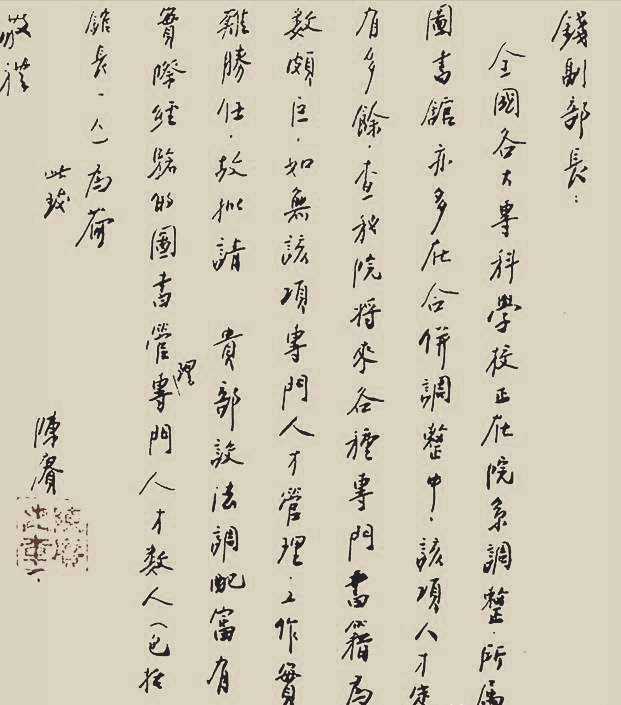 錢副部長：
全國各大專科學校正在院系調整，所屬
圖書館亦多在合併調整中，該項人才定
有多餘，查我院將來各種專門書籍為
數頗巨，如無該項專門人才管理，工作實
難勝任，故擬請 貴部設法調配富有
實際經驗的圖書管理專門人才數人（包括
館長一人）為荷
此致
敬禮
陳賡